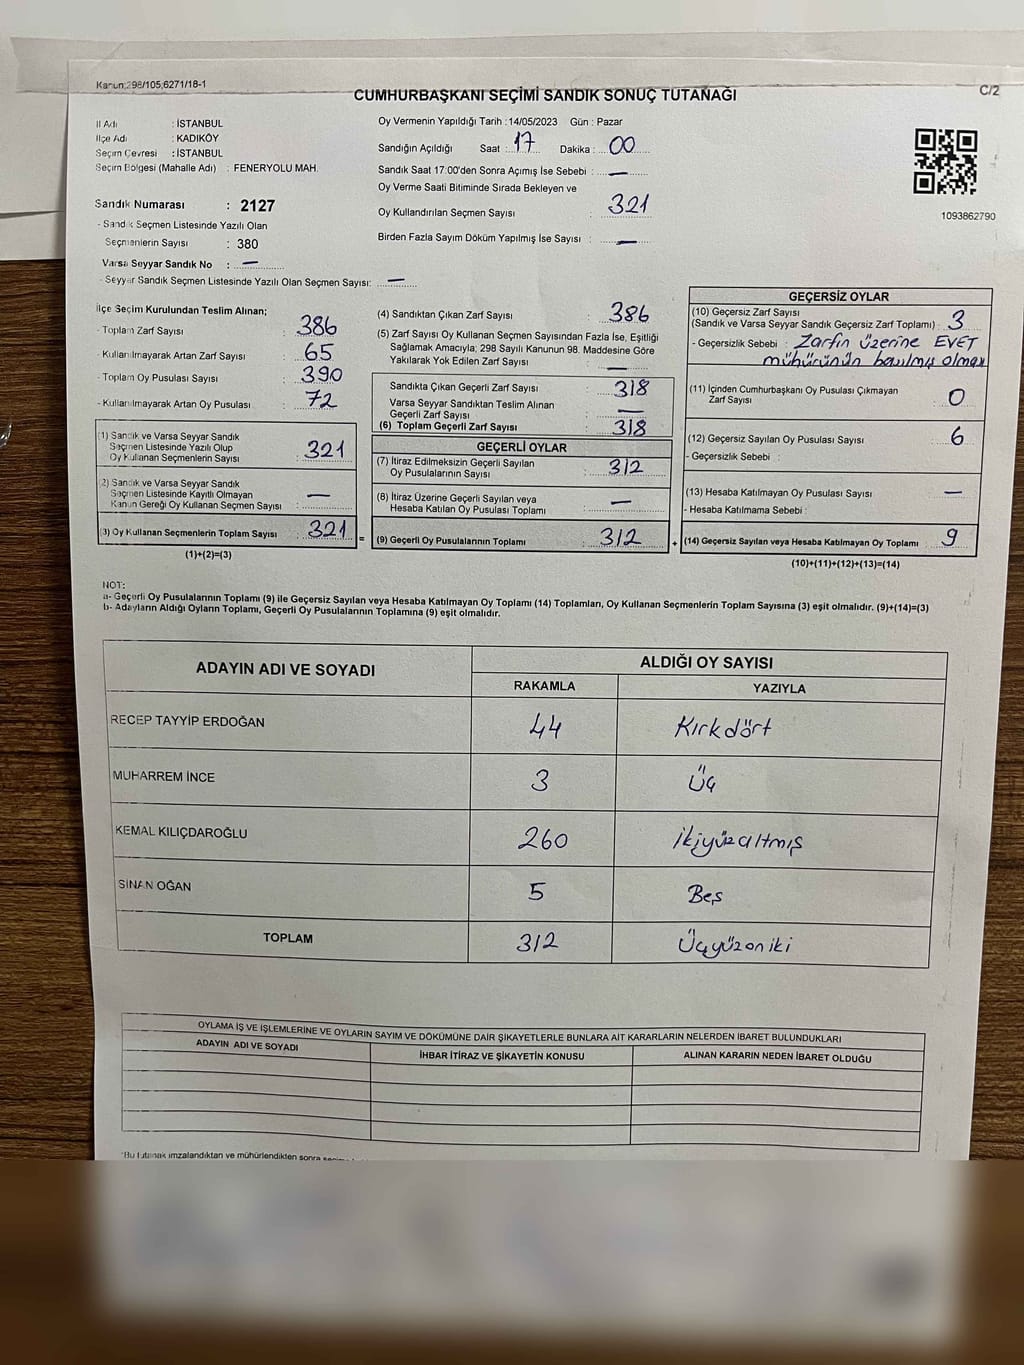 Kanun;298/105;6271/18-1
CUMHURBAŞKANI SEÇİMİ SANDIK SONUÇ TUTANAĞI
C/2
İl Adı : İSTANBUL
İlçe Adı : KADIKÖY
Seçim Çevresi : İSTANBUL
Seçim Bölgesi (Mahalle Adı) : FENERYOLU MAH.
Sandık Numarası : 2127
- Sandık Seçmen Listesinde Yazılı Olan
Seçmenlerin Sayısı : 380
Varsa Seyyar Sandık No : —
- Seyyar Sandık Seçmen Listesinde Yazılı Olan Seçmen Sayısı: —
Oy Vermenin Yapıldığı Tarih :14/05/2023 Gün : Pazar
Sandığın Açıldığı Saat : 17 Dakika : 00
Sandık Saat 17:00'den Sonra Açılmış İse Sebebi : —
Oy Verme Saati Bitiminde Sırada Bekleyen ve
Oy Kullandırılan Seçmen Sayısı : 321
Birden Fazla Sayım Döküm Yapılmış İse Sayısı : —
1093862790
İlçe Seçim Kurulundan Teslim Alınan;
- Toplam Zarf Sayısı : 386
- Kullanılmayarak Artan Zarf Sayısı : 65
- Toplam Oy Pusulası Sayısı : 390
- Kullanılmayarak Artan Oy Pusulası : 72
(1) Sandık ve Varsa Seyyar Sandık
Seçmen Listesinde Yazılı Olup
Oy Kullanan Seçmenlerin Sayısı : 321
(2) Sandık ve Varsa Seyyar Sandık
Seçmen Listesinde Kayıtlı Olmayan
Kanun Gereği Oy Kullanan Seçmen Sayısı : —
(3) Oy Kullanan Seçmenlerin Toplam Sayısı : 321
(1)+(2)=(3)
(4) Sandıktan Çıkan Zarf Sayısı : 386
(5) Zarf Sayısı Oy Kullanan Seçmen Sayısından Fazla İse, Eşitliği
Sağlamak Amacıyla; 298 Sayılı Kanunun 98. Maddesine Göre
Yakılarak Yok Edilen Zarf Sayısı : —
Sandıkta Çıkan Geçerli Zarf Sayısı : 318
Varsa Seyyar Sandıktan Teslim Alınan
Geçerli Zarf Sayısı : —
(6) Toplam Geçerli Zarf Sayısı : 318
GEÇERLİ OYLAR
(7) İtiraz Edilmeksizin Geçerli Sayılan
Oy Pusulalarının Sayısı : 312
(8) İtiraz Üzerine Geçerli Sayılan veya
Hesaba Katılan Oy Pusulası Toplamı : —
= (9) Geçerli Oy Pusulalarının Toplamı : 312
GEÇERSİZ OYLAR
(10) Geçersiz Zarf Sayısı
(Sandık ve Varsa Seyyar Sandık Geçersiz Zarf Toplamı) : 3
- Geçersizlik Sebebi : Zarfın Üzerine EVET
mühürünün basılmış olması
(11) İçinden Cumhurbaşkanı Oy Pusulası Çıkmayan
Zarf Sayısı : 0
(12) Geçersiz Sayılan Oy Pusulası Sayısı : 6
- Geçersizlik Sebebi :
(13) Hesaba Katılmayan Oy Pusulası Sayısı : —
- Hesaba Katılmama Sebebi :
+ (14) Geçersiz Sayılan veya Hesaba Katılmayan Oy Toplamı : 9
(10)+(11)+(12)+(13)=(14)
NOT:
a- Geçerli Oy Pusulalarının Toplamı (9) ile Geçersiz Sayılan veya Hesaba Katılmayan Oy Toplamı (14) Toplamları, Oy Kullanan Seçmenlerin Toplam Sayısına (3) eşit olmalıdır. (9)+(14)=(3)
b- Adayların Aldığı Oyların Toplamı, Geçerli Oy Pusulalarının Toplamına (9) eşit olmalıdır.
ADAYIN ADI VE SOYADI
ALDIĞI OY SAYISI
RAKAMLA YAZIYLA
RECEP TAYYİP ERDOĞAN 44 Kırkdört
MUHARREM İNCE 3 Üç
KEMAL KILIÇDAROĞLU 260 İkiyüzaltmış
SİNAN OĞAN 5 Beş
TOPLAM 312 Üçyüzoniki
OYLAMA İŞ VE İŞLEMLERİNE VE OYLARIN SAYIM VE DÖKÜMÜNE DAİR ŞİKAYETLERLE BUNLARA AİT KARARLARIN NELERDEN İBARET BULUNDUKLARI
ADAYIN ADI VE SOYADI İHBAR İTİRAZ VE ŞİKAYETİN KONUSU ALINAN KARARIN NEDEN İBARET OLDUĞU
*Bu tutanak imzalandıktan ve mühürlendikten sonra